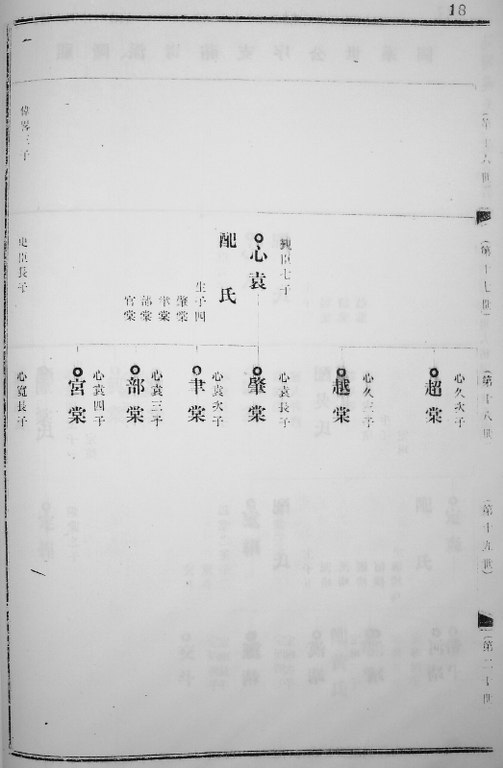 18
(第十六世)
(第十七世)
(第十八世)
(第十九世)
(第二十世)
心袁
配 氏
生子四
肇棠
聿棠
部棠
宮棠
心久次子
超棠
心久三子
越棠
心袁長子
肇棠
心袁次子
聿棠
心袁三子
部棠
心袁四子
宮棠
心寬長子
史臣長子